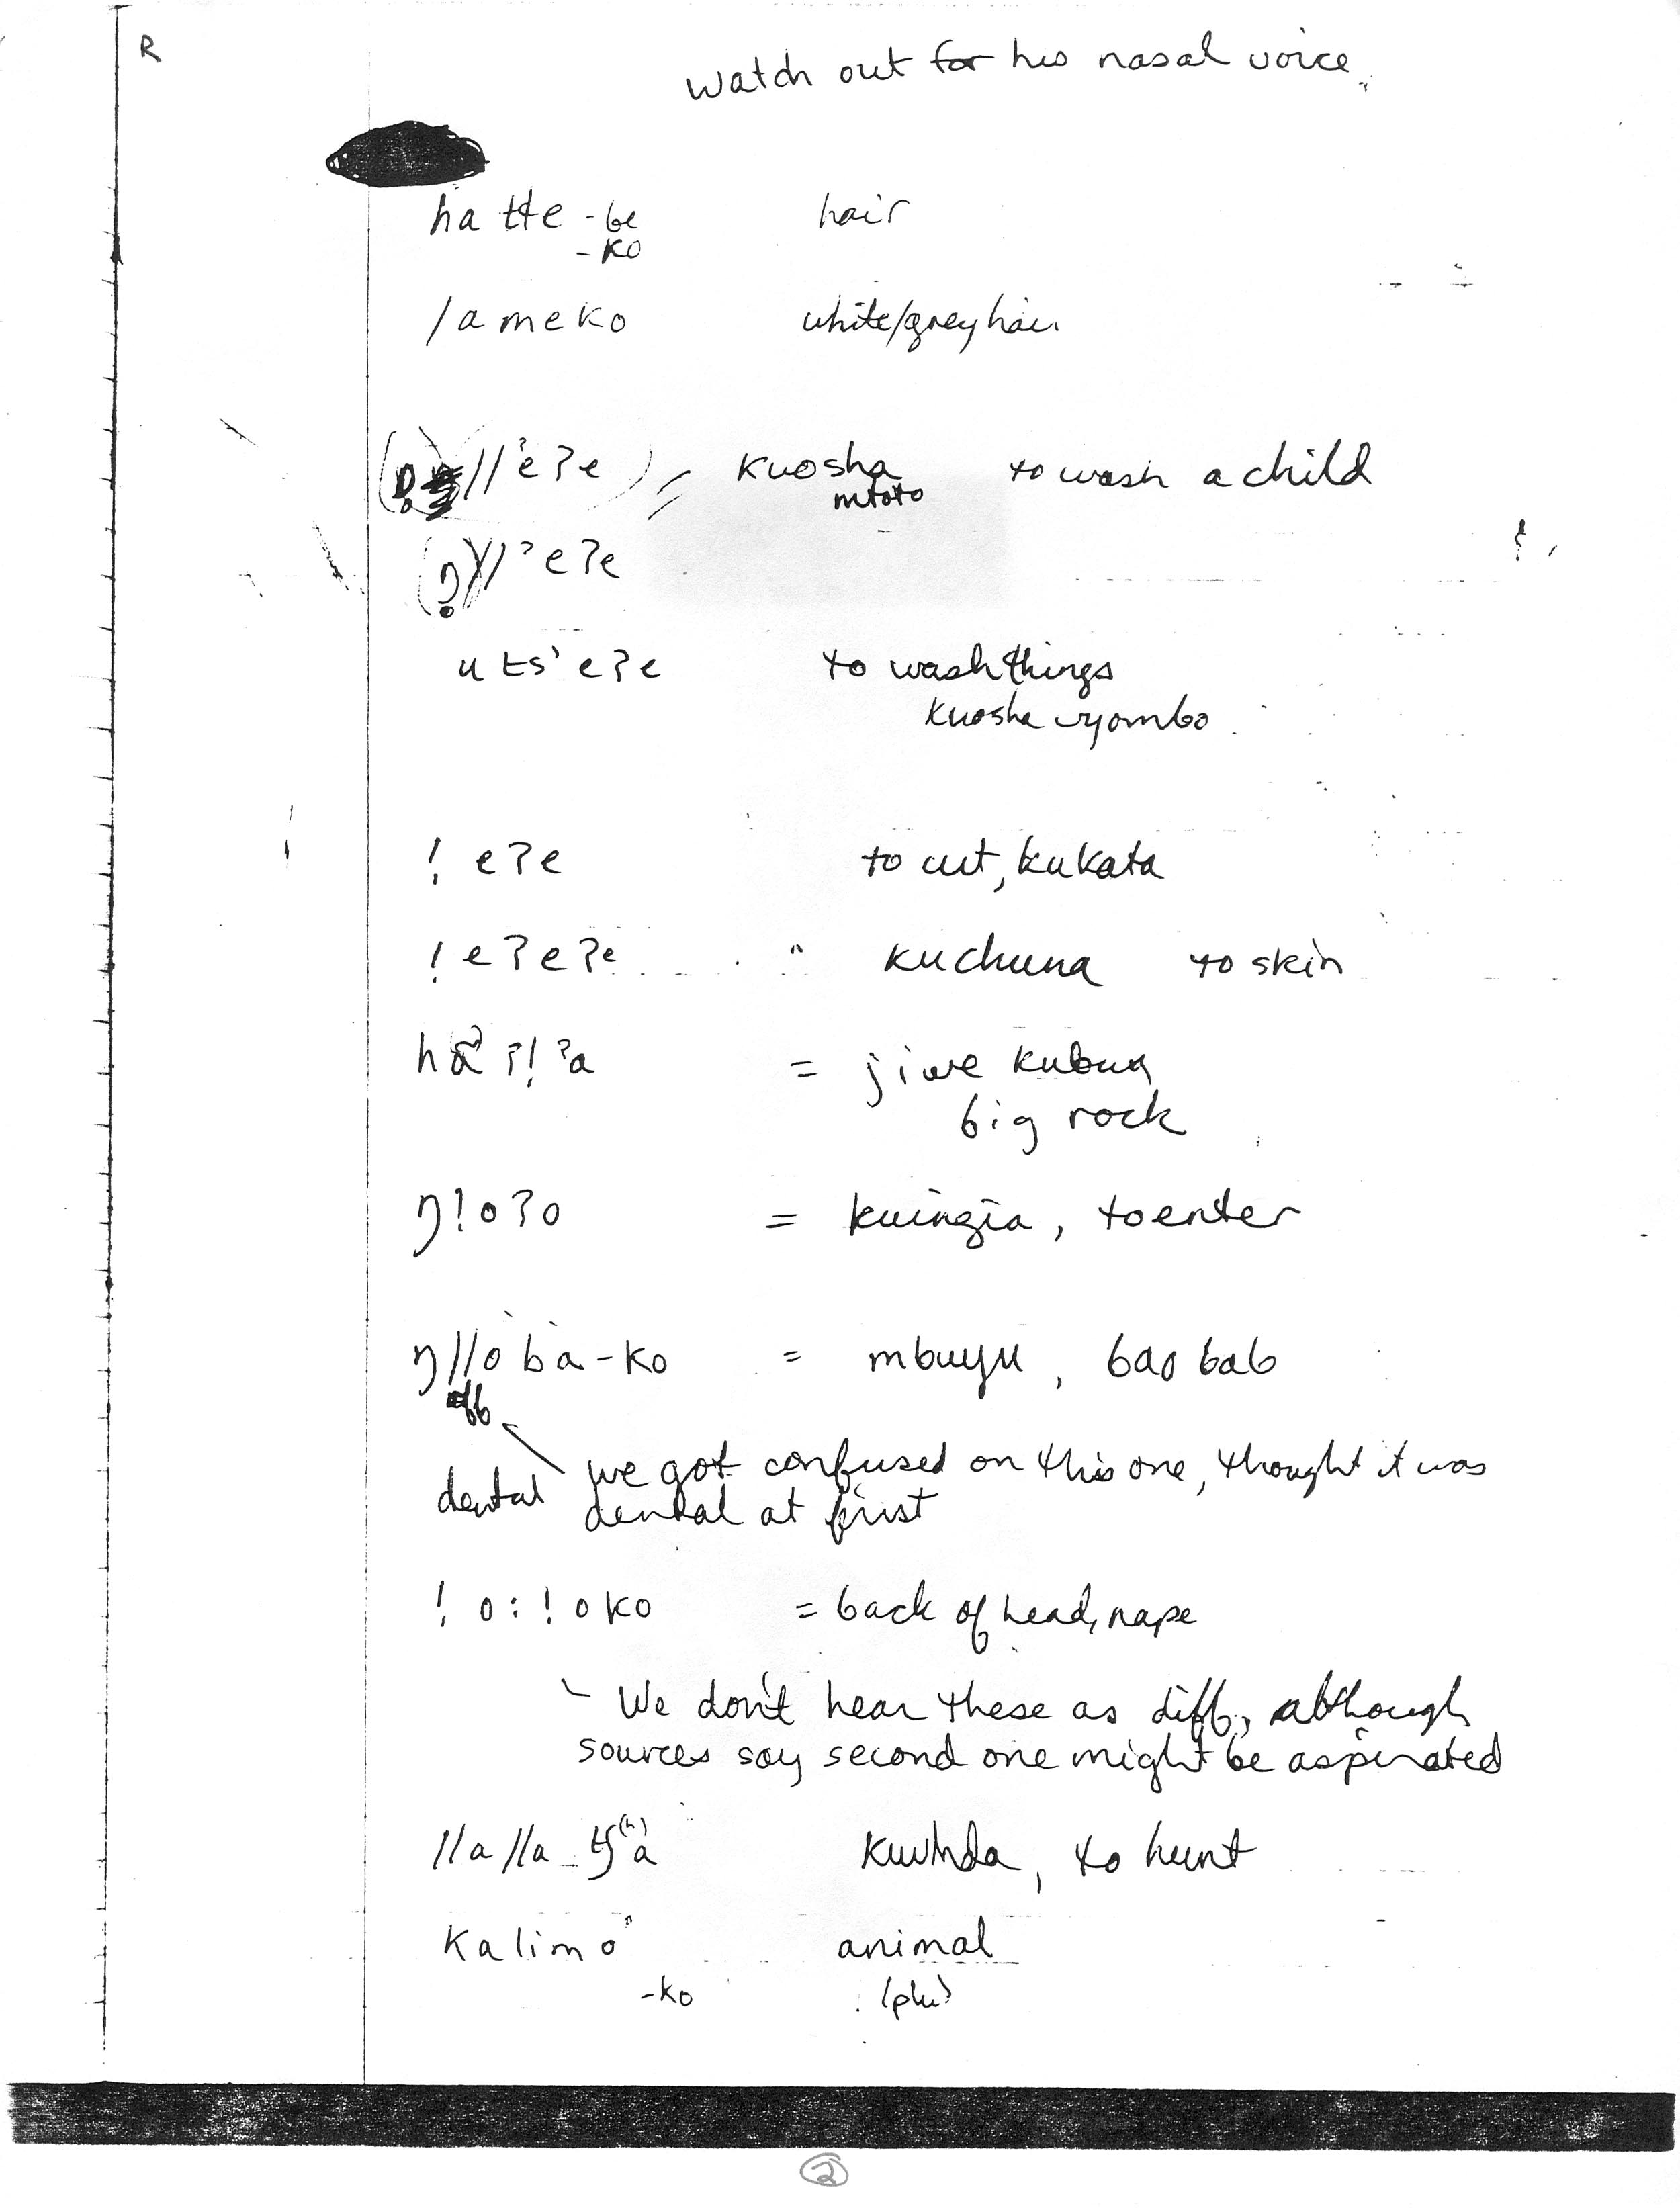 R
watch out for his nasal voice.
hatɬe -be hair
-ko
/ameko white/grey hair
//ˀeʔe = kuosha to wash a child
mtoto
(ŋ̥)//ˀeʔe
uts'eʔe to wash things
kuosha vyombo
! eʔe to cut, kukata
! eʔeʔe " kuchuna to skin
hãʔ!ˀa = jiwe kubwa
big rock
ŋ!oʔo = kuingia, to enter
ŋ//òbà-ko = mbuyu, baobab
aff
dental we got confused on this one, thought it was
dental at first
! o:!oko = back of head, nape
- We don't hear these as diff., although
sources say second one might be aspirated
//a//a_tʃ⁽ʰ⁾a kuwinda, to hunt
Kalimô animal
-ko (plu)
2